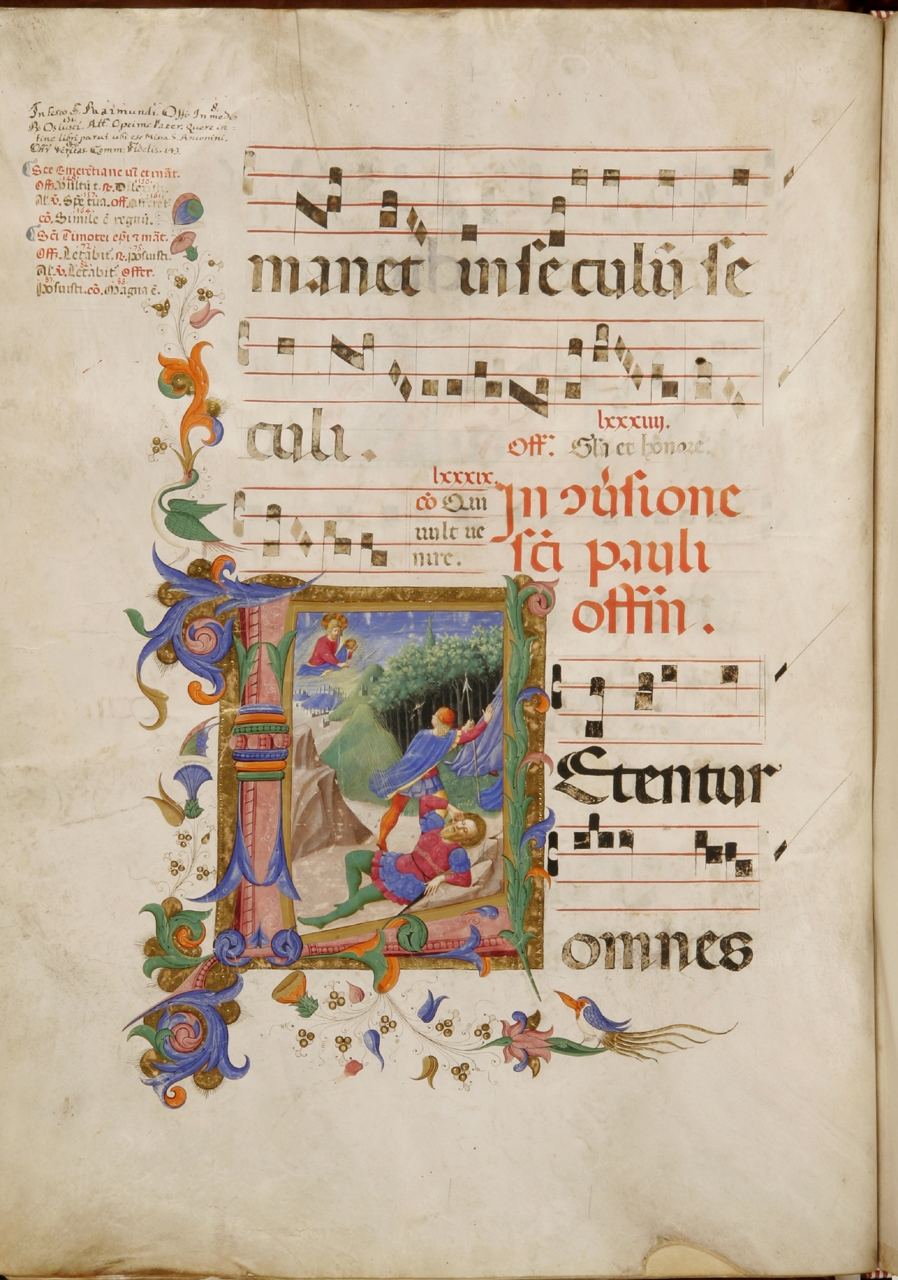 In festo S. Raimundi. Offm In medio
R. Os iusti. All. Optime Pater. Quere in
fine libri parui ubi est Missa S. Antonini.
Offm Veritas. Comm. Fidelis. 143
Sce Emeretiane vi et mãt.
Off. Vultũ t. R. Dile
Al. V. Spetua. off. Afferẽt
cõ. Simile ẽ regnũ.
Sci Timotei epi et mãt.
Off. Letabit. R. posuisti.
Al. V. Letabit Offer.
Posuisti. cõ. Magna ẽ.
manet in seculũ se
culi.
lxxxiiij.
Off. Glia et honore.
lxxxix.
cõ Qui
vult ue
nire.
In ꝯũsione
sci pauli
offm.
Etentur
omnes